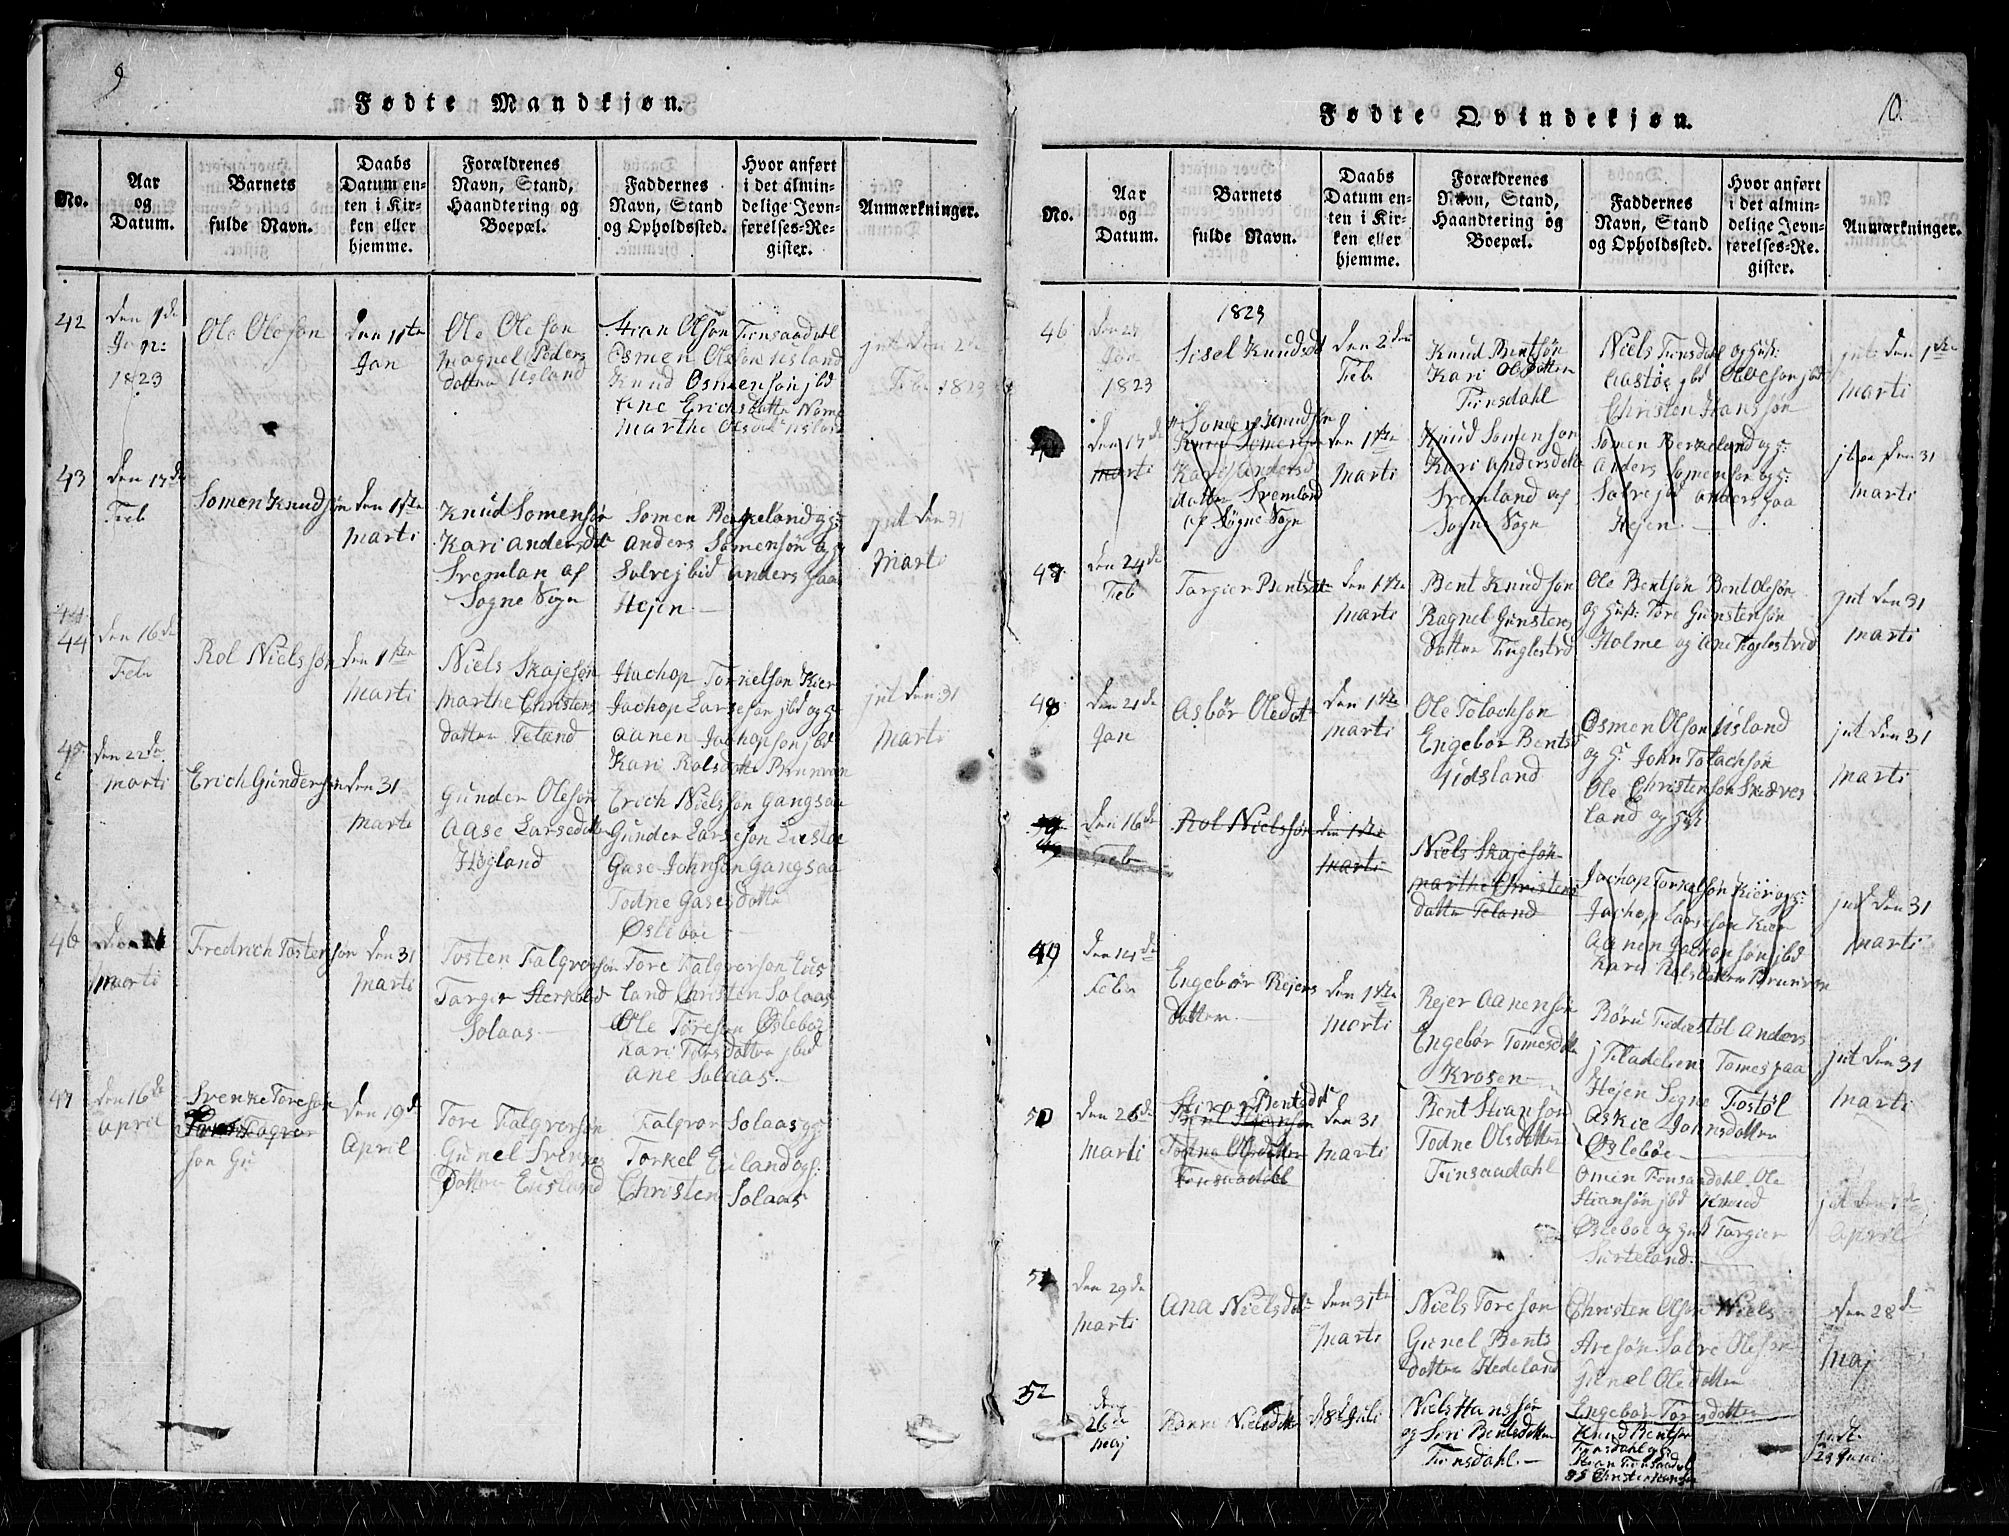 9
Fødte Mandkjøn.
No.
Aar
og
Datum.
Barnets
fulde Navn.
Daabs
Datum en-
ten i Kir-
ken eller
hjemme.
Forældrenes
Navn, Stand,
Haandtering og
Boepæl.
Faddernes
Navn, Stand
og Opholdssted.
Hvor anført
i det almin-
delige Jevn-
førelses-Re-
gister.
Anmærkninger.
42
den 1de
Jan:
1823
Ole Oleson
den 11te
Jan
Ole Oleson
Magnel Peders
datter Usland
Stian Olson Finsaadahl
Osmen Oleson Usland
Knud Osmenson jbd
Ane Erichsdatter
Marthe Olsdat Usland
jnt den 2de
Feb 1823
43
den 17de
Feb
Somen Knudsøn
den 1ste
Marti
Knud Somensøn
Kari Andersdat
Sremlan af
Sogne Sogn
Somen Berkeland og g:
Anders Somensøn og g
Solvej jbid Anders Aaa
Hejen
jnt den 31
Marti
44
den 16de
Feb
Rol Nielssøn
den 1ste
Marti
Niels Skajesøn
Marthe Christens
datter Teland
Jachop Torkelson Kier
Jachop Larseson jbd og g
Aanen Jachopson jbd
Kari Rolsdatter Brunvan
jnt den 31
Marti
45
den 22de
Marti
Erich Gundersøn
den 31
Marti
Gunder Olesøn
Aase Larsedatter
Højland
Erich Nielssøn Gangsaa
Gunder Larseson
Gase Johnsøn Gangsaa
Todne Gasesdatter
Øsleboe
46
Marti
Fredrich Tostenson
den 31
Marti
Tosten Falgversøn
Targier
Solaas
Tore Falgverson Eus
land Christen Solaas
Ole Tøreson Øsleboe
Kari Tørisdatter jbid
Ane Solaas
47
den 16de
April
Svenke Toreson
den 19de
April
Tore Falgverson
Gunel Svenkes
Datter Eusland
Falgvor Solaas og g:
Torkel Eusland og g:
Christen Solaas
10
Fødte Qvindekjøn.
No.
Aar
og
Datum.
Barnets
fulde Navn.
Daabs
Datum en-
ten i Kir-
ken eller
hjemme.
Forældrenes
Navn, Stand,
Haandtering og
Boepæl.
Faddernes
Navn, Stand
og Opholdssted.
Hvor anført
i det almin-
delige Jevn-
førelses-Re-
gister.
Anmærkninger.
1823
46
Jan
1823
Sisel Knudsdt
den 2den
Feb
Knud Bentsøn
Kari Olsdatter
Finsdahl
Niels Finsdahl og Hust:
Aastøe jbd Oleson jbd
Christen Hanssøn
jnt den 1ste
Marti
den 17de
Marti
Somen Knudsøn
Knud Somensøn
Kari Anders
datter Sremland
af Søgne Sogn
den 1ste
Marti
Knud Somenson
Kari Andersdatter
Sremland af
Sogne Sogn
Somen Berkeland og g:
Anders Somenson og g:
Solvej jbd Anders Aaa
Hejen
den 31
Marti
47
den 24de
Feb
Targier Bentsdt
den 1ste
Marti
Bent Knudson
Ragnel Gunstens
datter Tinglestvd
Ole Bentsøn Bent Olesøn
og Hust: Tore Gunstensøn
Holme og Ane
jnt den 31
Marti
48
den 21de
Jan
Asbør Oledat
den 1ste
Marti
Ole Tolachson
Engebør Bentsd
Udsland
Osmen Olson Usland
og g: John Tolachsøn
Ole Christenson Skæves
land og Hust
jnt den 31
Marti
den 16de
Feb
Rol Nielssøn
den 1ste
Marti
Niels Skajesøn
Marthe Christens
datter Teland
Jachop Torkelsøn Kier og g:
Jachop Larseson Kier
Aanen Jachopsøn jbd
Kari Rolsdatter Brunvan
jnt den 31
Marti
49
den 14de
Feb
Engebør Rejers
datter
den 1ste
Marti
Rejer Aanensøn
Engebør Tomesdatter
Krosen
Anders
Tomes Aaa
Hejen Sogne Fostøl
Askie Johnsdatter
Øsleboe
jnt den 31
Marti
50
den 26de
Marti
Bentsdt
Todne Olsdatter
Finsaadahl
den 31
Marti
Bent Stiansøn
Todne Olsdatter
Finsaadahl
Omen Finsaadahl Ole
Stiansøn jbd Knud
Øsleboe og Hust Targier
Surteland
April
51
den 29de
Marti
Ana Nielsdat
den 31te
Marti
Niels Toreson
Gunel Bents
datter Hedeland
Christen Olson Niels
Aresøn Salve Oleson
Gunel Oledatter
Engebør Toresdatter
den 28de
Maj
52
den
26de
Maj
Nielsdatter
d 8de Juli
Niels Hanssøn
og Siri Bentsdatter
Finsdahl
Knud Bentson
Finsdahl og g
Stian Finsadal
og Christen Hansen